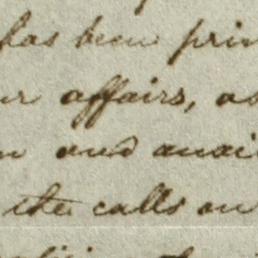 has been prin
ur affairs, as
n and avail
the calls on